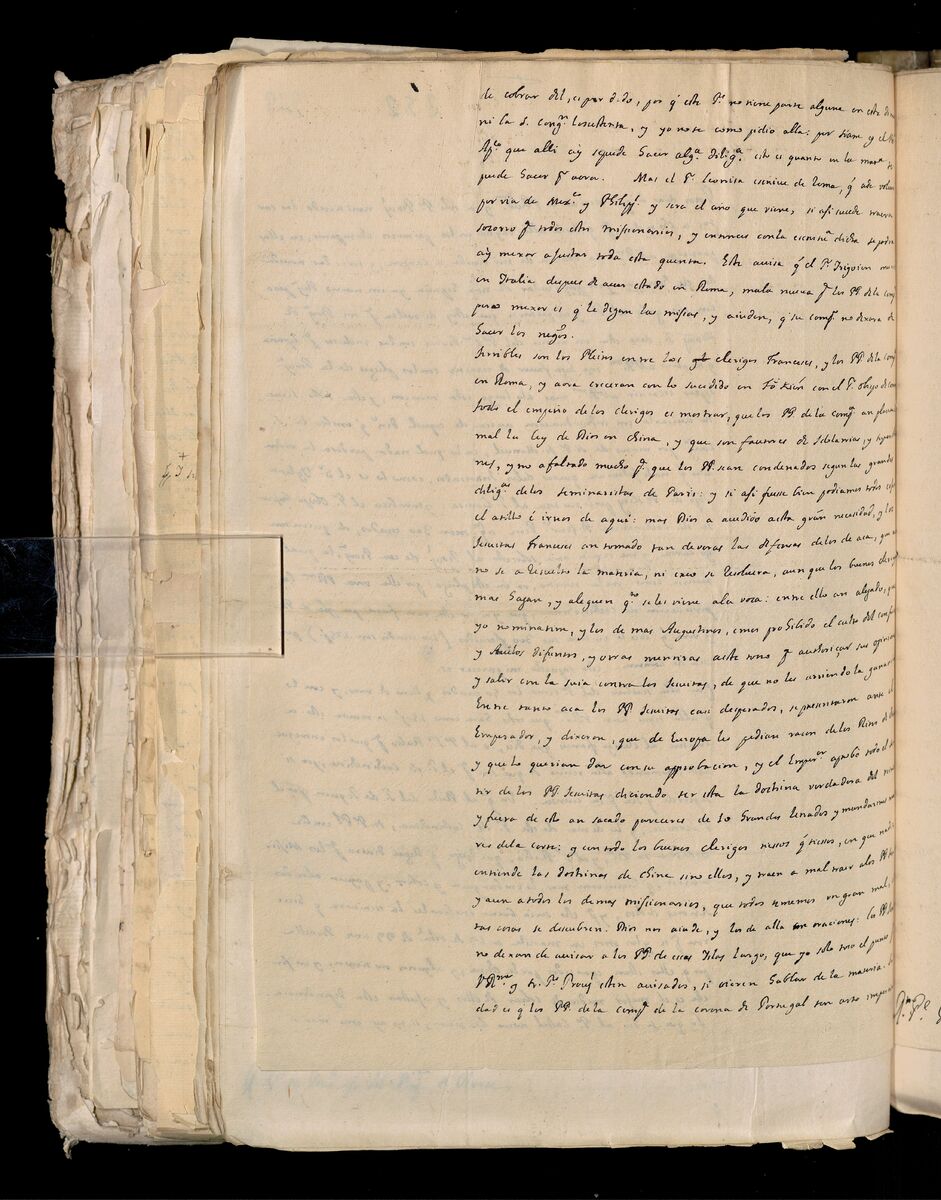 de cobrar del, es perdido, por q̃ este P.e no tiene parte alguna en este din
ni la s. cong.n lo sustenta, y yo no se como pidio alla: por Siam y el
Ap.co que alli ay se puede hacer alg.a dilig.a esto es quanto en la mat.a se
puede hacer p.a aora. Mas el P. Leonissa escrive de Roma, q̃ ade volver
por via de Mex.co y Philip.s y sera el año que viene, si asi sucede traera
socorro p.a todos estos missionarios, y entonces con la escritu.a dicha se podra
ay mexor ajustar toda esta quenta. Este avisa q̃ el P.e Frigoien
en Italia despues de aver estado en Roma, mala nueva p.a los PP. de la
pero mexor es q̃ le digan las missas, y aiuden, q̃ su comp.a no dexara de
hacer los neg.os
Terribles son los Pleitos entre los clerigos Franceses, y los PP. de la com
en Roma, y aora creceran con lo sucedido en Fokien con el P. obispo de
todo el empeño de los clerigos es mostrar, que los PP. de la comp.a an
mal la ley de Dios en China, y que son fautores de idolatrias, y
nes, y no a faltado mucho p.a que los PP. sean condenados segun las grandes
dilig.as de los seminaristas de Paris: y si asi fuesse bien podiamos todos
el atillo é irnos de aqui: mas Dios a acudido a esta grán necesidad, y los
Jesuitas Franceses an tomado tan de voras las difensas de los de aca, que
no se a resuelto la materia, ni creo se resolvera, aun que los buenos cleri
mas hagan, y aleguen q.to se les viene a la voca: entre ello an alegado, que
yo nominatim, y los de mas Augustinos, emos prohibido el culto del conf
y Abuelos difuntos, y otras mentiras a este tono p.a autorisar sus opinion
y salir con la suia contra los Jesuitas, de que no les arriendo la ganan
Entre tanto aca los PP. Jesuitas casi desperados, se presentaron ante el
Emperador, y dixeron, que de Europa les pedian racon de los Ritos de
y que lo querian dar con su approbacion, y el Emper.or aprobó todo el
tir de los PP. Jesuitas diciendo ser esta la doctrina verdadera del
y fuera de esto an sacado pareceres de 10 Grandes Letrados y mandarines
res de la corte: y con todo los buenos clerigos tiessos q̃ tiessos, en que nadie
entiende las doctrinas de China sino ellos, y traen a mal traer a los PP.
y aun a todos los demas missionarios, que todos tememos un gran mal,
tas cosas se descubren. Dios nos aiude, y los de alla con oraciones: los PP.
no dexan de avisar a los PP. de essas Islas largo, que yo solo toco el punto
V R.ma y N. P.e Prov.l esten avisados, si oieren hablar de la materia.
dad es q̃ los PP. de la comp.a de la corona de Portugal son arto